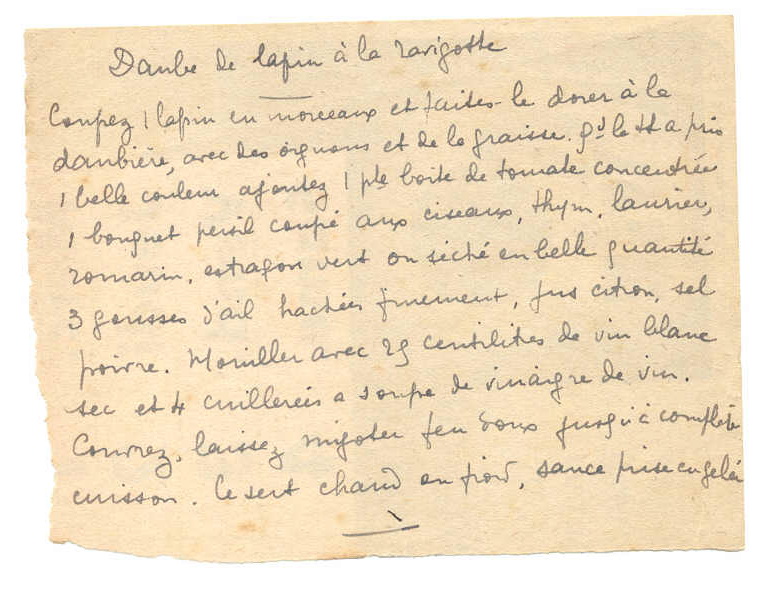 Daube de lapin à la ravigotte
Coupez 1 lapin en morceaux et faites-le dorer à la
daubière, avec des oignons et de la graisse. Qd le tt a pris
1 belle couleur ajoutez 1 pte boite de tomate concentrée
1 bouquet persil coupé aux ciseaux, thym, laurier,
romarin, estragon vert ou séché en belle quantité
3 gousses d'ail hachées finement, jus citron, sel
poivre. Mouiller avec 25 centilitres de vin blanc
sec et 4 cuillerées a soupe de vinaigre de vin.
Couvrez, laissez mijoter feu doux jusqu'à complète
cuisson. Se sert chaud ou froid, sauce prise en gelée